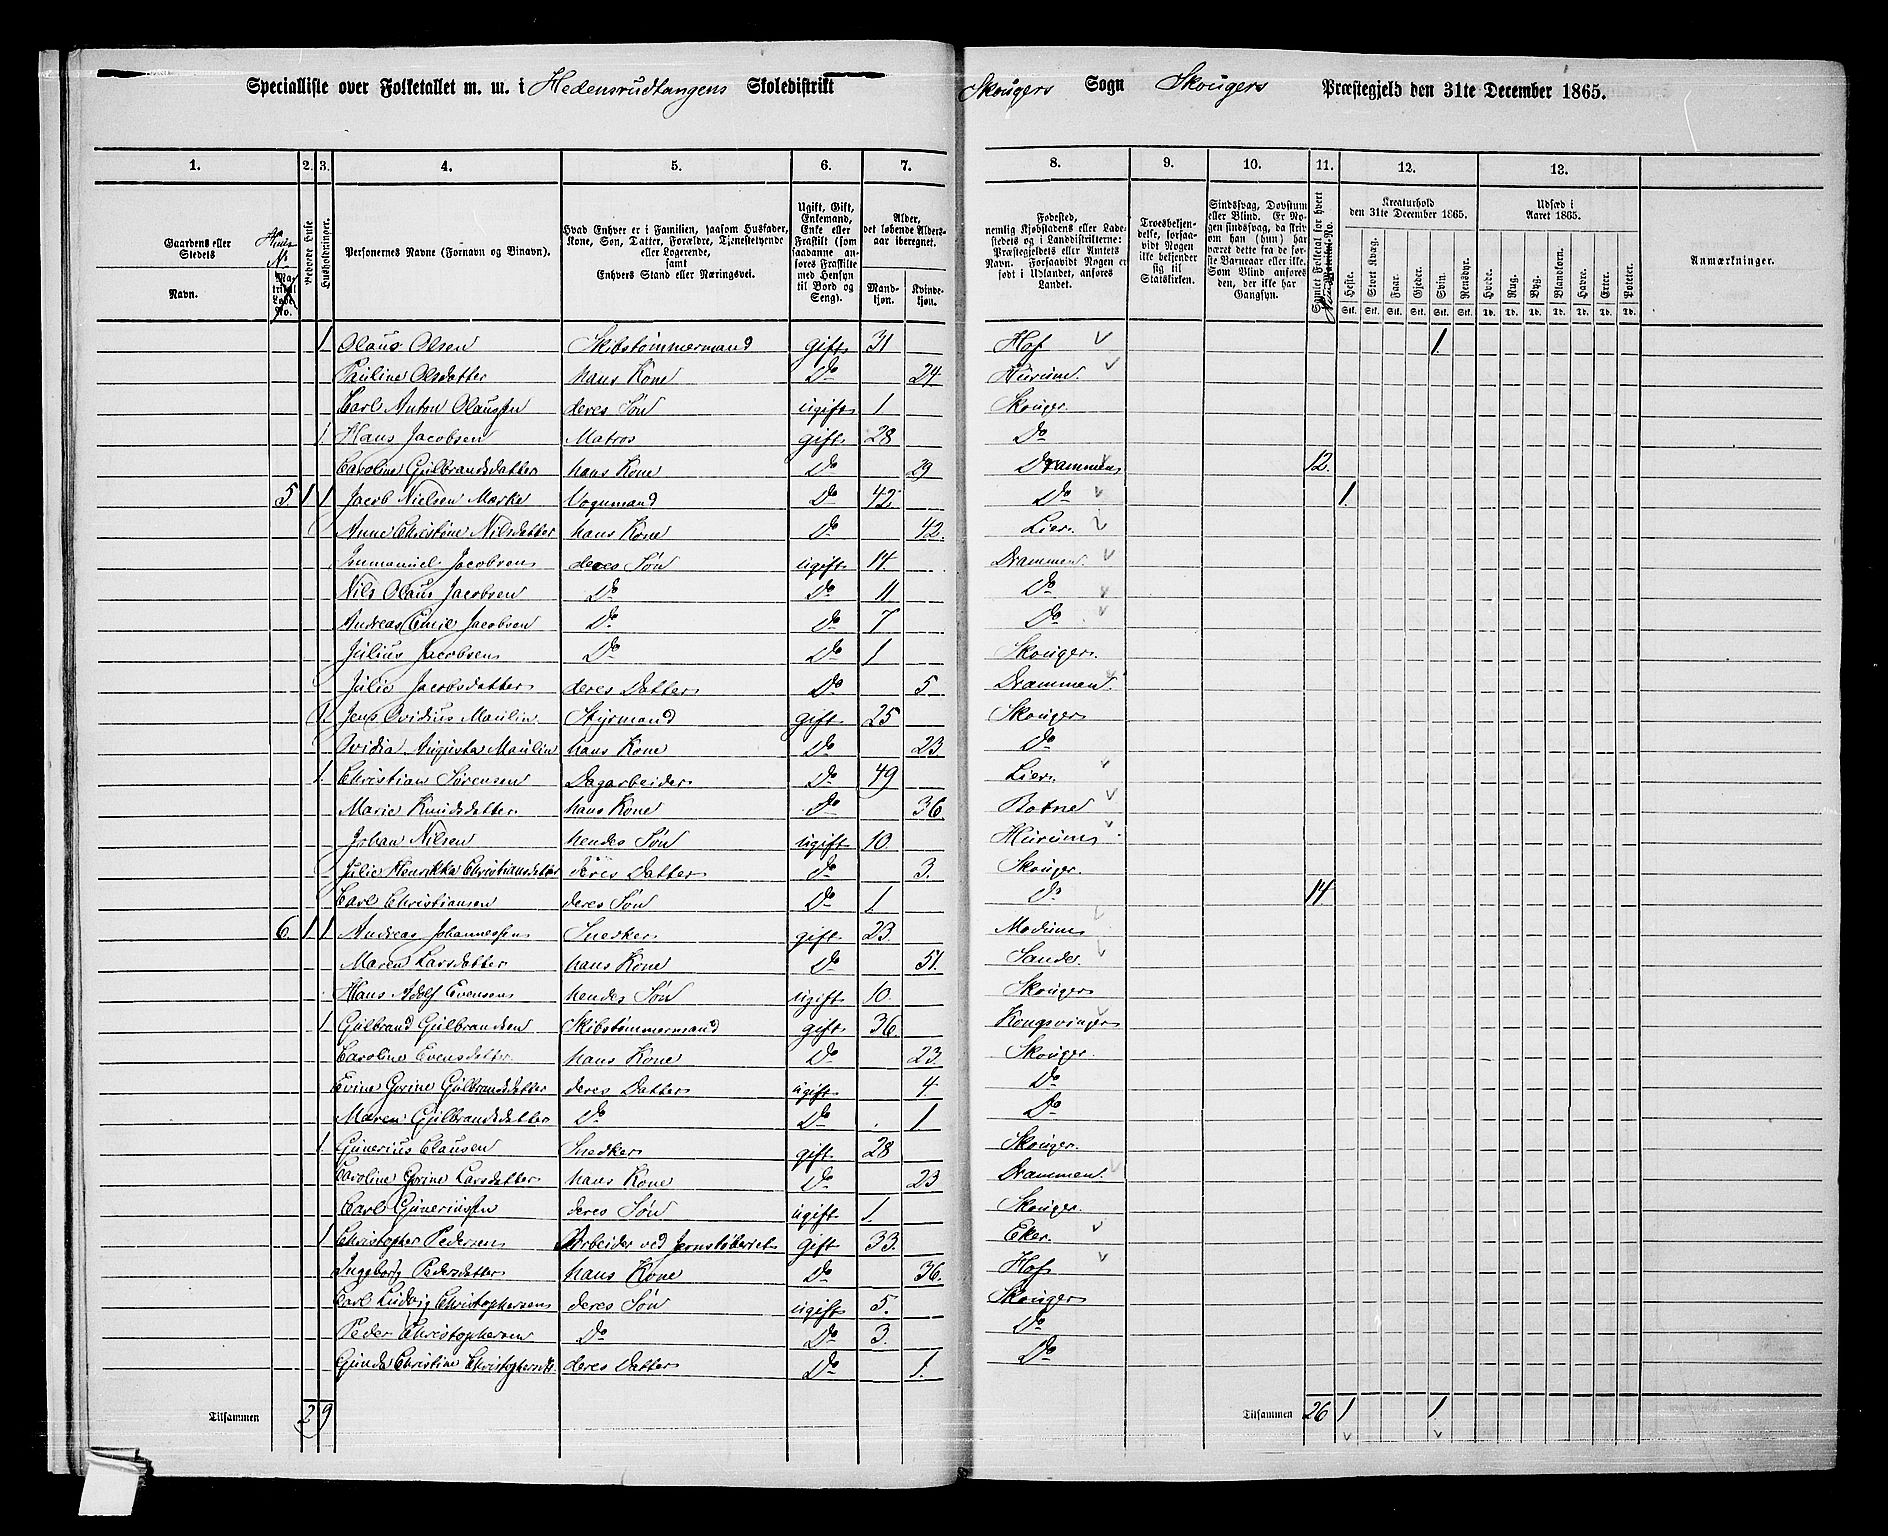 Specialliste over Folketallet m. m. i Hedensrudtangens Skoledistrikt Skougers Sogn Skougers Præstegjeld den 31te December 1865.
1. 2. 3. 4. 5. 6. 7. 8. 9. 10. 11. 12. 13.
Gaardens eller Stedets Navn.
Huus No.
Matrikul Løbe-No.
Beboede Huse
Husholdninger.
Personernes Navne (Fornavn og Binavn).
Hvad Enhver er i Familien, saasom Husfader, Kone, Søn, Datter, Forældre, Tjenestetyende eller Logerende, samt Enhvers Stand eller Næringsvei.
Ugift, Gift, Enkemand, Enke eller Fraskilt (som saadanne anføres Fraskilte med Hensyn til Bord og Seng).
Alder, det løbende Aldersaar iberegnet.
Mandkjøn. Kvindekjøn.
Fødested, nemlig Kjøbstadens eller Ladestedets og i Landdistrikterne: Præstegjeldets eller Amtets Navn. Forsaavidt Nogen er født i Udlandet, anføres Landet.
Troesbekjendelse, forsaavidt Nogen ikke bekjender sig til Statskirken.
Sindssvag, Døvstum eller Blind. Er Nogen sindssvag, da skrives om han (hun) har været dette fra de første Barneaar eller ikke. Som Blind anføres den, der ikke har Gangsyn.
Kreaturhold den 31te December 1865.
Heste. Stort Kvæg. Faar. Gjeder. Svin. Rensdyr.
Stk. Stk. Stk. Stk. Stk. Stk.
Udsæd i Aaret 1865.
Hvede. Rug. Byg. Blandkorn. Havre. Erter. Poteter.
Td. Td. Td. Td. Td. Td. Td.
Anmærkninger.
1 Olaus Olsen Skibstømmermand gift 31 Hof 1.
Pauline Olsdatter hans Kone Do 24 Hurum.
Carl Anton Olaussen deres Søn ugift 1 Skouger.
1. Hans Jacobsen Matros gift 28 Do
Caroline Gulbrandsdatter hans Kone Do 29 Drammen 12.
5. 1 1 Jacob Nielsen Marke Vognmand Do 42 Do 1.
Anne Christine Nilsdatter hans Kone Do 42. Lier.
Immanuel Jacobsen deres Søn ugift 14. Drammen.
Nils Olaus Jacobsen Do Do 11. Do
Andreas Emil Jacobsen Do Do 7 Do
Julius Jacobsen Do Do 1 Skouger.
Julie Jacobsdatter deres Datter Do 5 Drammen.
1. Jens Ovidius Maulin Styrmand gift 25 Skouger
Ovidia Augusta Maulin hans Kone Do 23 Do
1. Christian Sørensen Dagarbeider Do 49 Lier
Marie Knudsdatter hans Kone Do 36 Botne
Johan Nilsen hendes Søn ugift 10. Hurum
Julie Henrikka Christiansdatter deres Datter Do 3. Skouger.
Carl Christiansen deres Søn Do 1. Do 14
6. 1 1 Andreas Johannessen Snedker gift 23. Modum
Maren Larsdatter hans Kone Do 51. Sande.
Hans Adolf Evensen hendes Søn ugift 10. Skouger
1 Gulbrand Gulbrandsen Skibstømmermand gift 36. Kongsvinger
Caroline Evensdatter hans Kone Do 23 Skouger.
Evine Gorine Gulbrandsdatter deres Datter ugift 4. Do
Maren Gulbrandsdatter Do Do 1 Do
1. Gunerius Clausen Snedker gift 28 Skouger.
Caroline Gorine Larsdatter hans Kone Do 23 Drammen.
Carl Guneriussen deres Søn ugift 1. Skouger.
1 Christopher Pedersen Arbeider ved Jernstøberiet gift 33. Eker.
Ingeborg Pedersdatter hans Kone Do 36. Hof
Carl Ludvig Christophersen deres Søn ugift 5. Skouger
Peder Christophersen Do Do 3. Do
Gunda Christine Christophersdt. deres Datter Do 1. Do
Tilsammen 2 9 Tilsammen 26 1 1